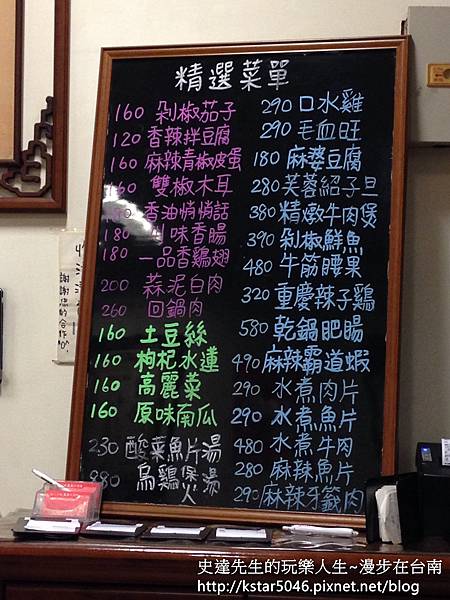 精選菜單
160 剁椒茄子
120 香辣拌豆腐
160 麻辣青椒皮蛋
160 雙椒木耳
香油悄悄話
180 川味香腸
180 一品香鷄翅
200 蒜泥白肉
260 回鍋肉
160 土豆絲
160 枸杞水蓮
160 高麗菜
160 原味南瓜
230 酸菜魚片湯
烏鷄煲湯
290 口水雞
290 毛血旺
180 麻婆豆腐
280 芙蓉紹子旦
380 精燉牛肉煲
390 剁椒鮮魚
480 牛筋腰果
320 重慶辣子鷄
580 乾鍋肥腸
490 麻辣霸道蝦
290 水煮肉片
290 水煮魚片
480 水煮牛肉
280 麻辣魚片
290 麻辣牙籤肉
謝謝您的合作
史達先生的玩樂人生~漫步在台南
http://kstar5046.pixnet.net/blog